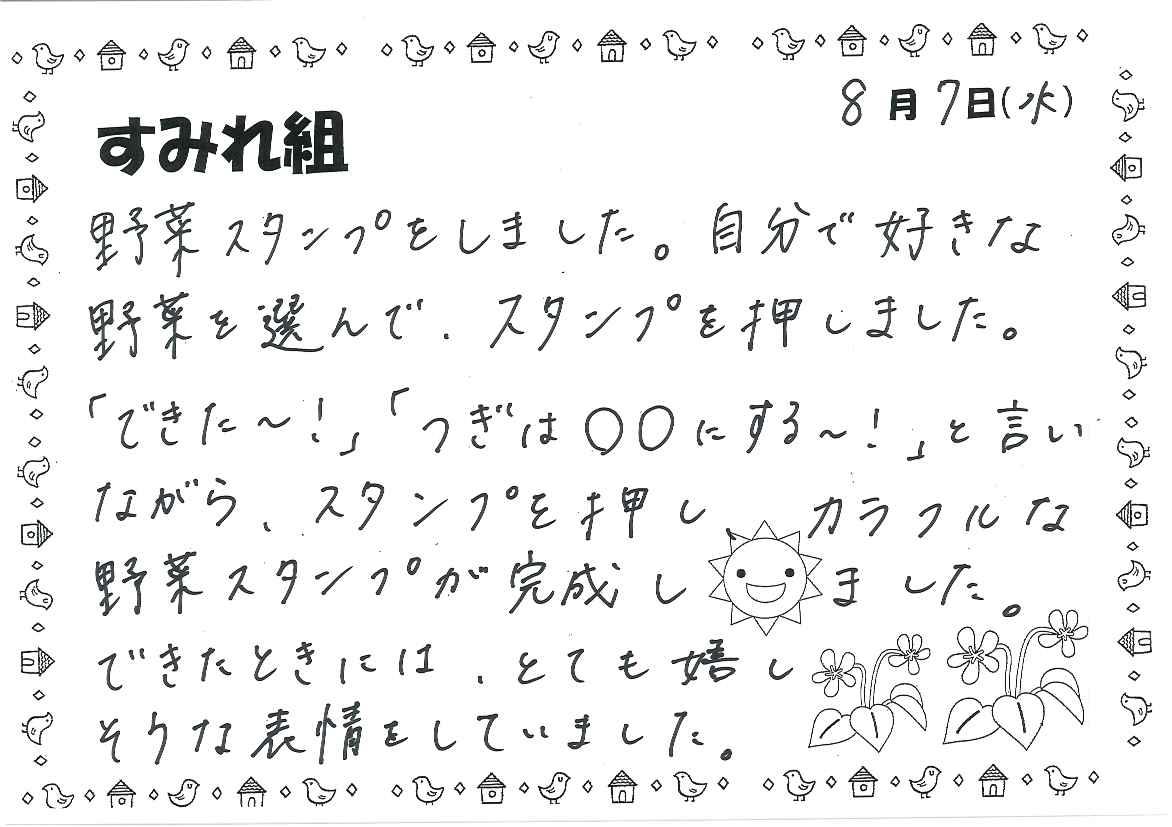 8月7日(水)
すみれ組
野菜スタンプをしました。自分で好きな
野菜を選んで、スタンプを押しました。
「できた～！」「つぎは〇〇にする～！」と言い
ながら、スタンプを押し、カラフルな
野菜スタンプが完成しました。
できたときには、とても嬉し
そうな表情をしていました。